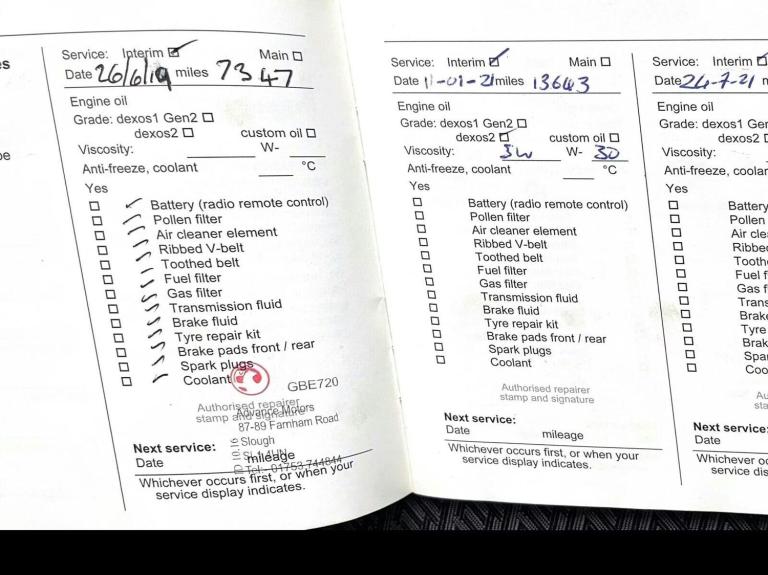 es
pe
Service: Interim Main
Date 26/6/19 miles 7347
Engine oil
Grade: dexos1 Gen2
dexos2 custom oil
Viscosity: W-
Anti-freeze, coolant °C
Yes
Battery (radio remote control)
Pollen filter
Air cleaner element
Ribbed V-belt
Toothed belt
Fuel filter
Gas filter
Transmission fluid
Brake fluid
Tyre repair kit
Brake pads front / rear
Spark plugs
Coolant
GBE720
Authorised repairer
stamp and signature
Advance Motors
87-89 Farnham Road
Slough
SL1 4UN
Tel:- 01753 744844
Next service:
Date mileage
Whichever occurs first, or when your
service display indicates.
Service: Interim Main
Date 11-01-21 miles 13643
Engine oil
Grade: dexos1 Gen2
dexos2 custom oil
Viscosity: 5w W- 30
Anti-freeze, coolant °C
Yes
Battery (radio remote control)
Pollen filter
Air cleaner element
Ribbed V-belt
Toothed belt
Fuel filter
Gas filter
Transmission fluid
Brake fluid
Tyre repair kit
Brake pads front / rear
Spark plugs
Coolant
Authorised repairer
stamp and signature
Next service:
Date mileage
Whichever occurs first, or when your
service display indicates.
Service: Interim
Date 24-7-21 m
Engine oil
Grade: dexos1 Gen
dexos2
Viscosity:
Anti-freeze, coolan
Yes
Battery
Pollen
Air cle
Ribbe
Tooth
Fuel f
Gas f
Trans
Brake
Tyre
Brak
Spar
Coo
Au
sta
Next service:
Date
Whichever oc
service dis